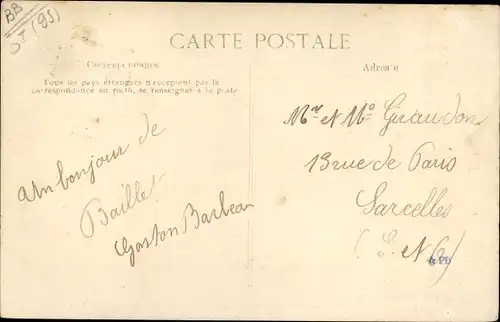 BB
DT (95)
CARTE POSTALE
Correspondance
Adresse
Tous les pays étrangers n'acceptent pas la
correspondance au recto, se renseigner à la poste
Un bonjour de
Baillet
Gaston Barbeau
Mr et Me Giraudon
13 rue de Paris
Sarcelles
(S. et O)